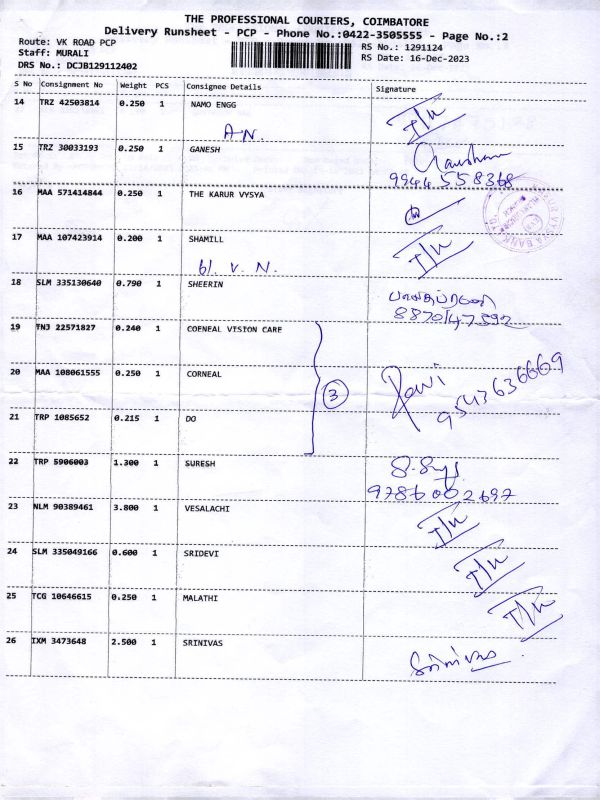 THE PROFESSIONAL COURIERS, COIMBATORE
Delivery Runsheet - PCP - Phone No.:0422-3505555 - Page No.:2
Route: VK ROAD PCP
Staff: MURALI
DRS No.: DCJB129112402
RS No.: 1291124
RS Date: 16-Dec-2023
S No Consignment No Weight PCS Consignee Details Signature
14 TRZ 42503814 0.250 1 NAMO ENGG
A.N.
15 TRZ 30033193 0.250 1 GANESH
9944558368
16 MAA 571414844 0.250 1 THE KARUR VYSYA
17 MAA 107423914 0.200 1 SHAMILL
V. N.
18 SLM 335130640 0.790 1 SHEERIN
8870147592
19 TNJ 22571827 0.240 1 COENEAL VISION CARE
20 MAA 108061555 0.250 1 CORNEAL
3
Ravi
9543636669
21 TRP 1085652 0.215 1 DO
22 TRP 5906003 1.300 1 SURESH
9786002697
23 NLM 90389461 3.800 1 VESALACHI
24 SLM 335049166 0.600 1 SRIDEVI
25 TCG 10646615 0.250 1 MALATHI
26 IXM 3473648 2.500 1 SRINIVAS
Srinivas